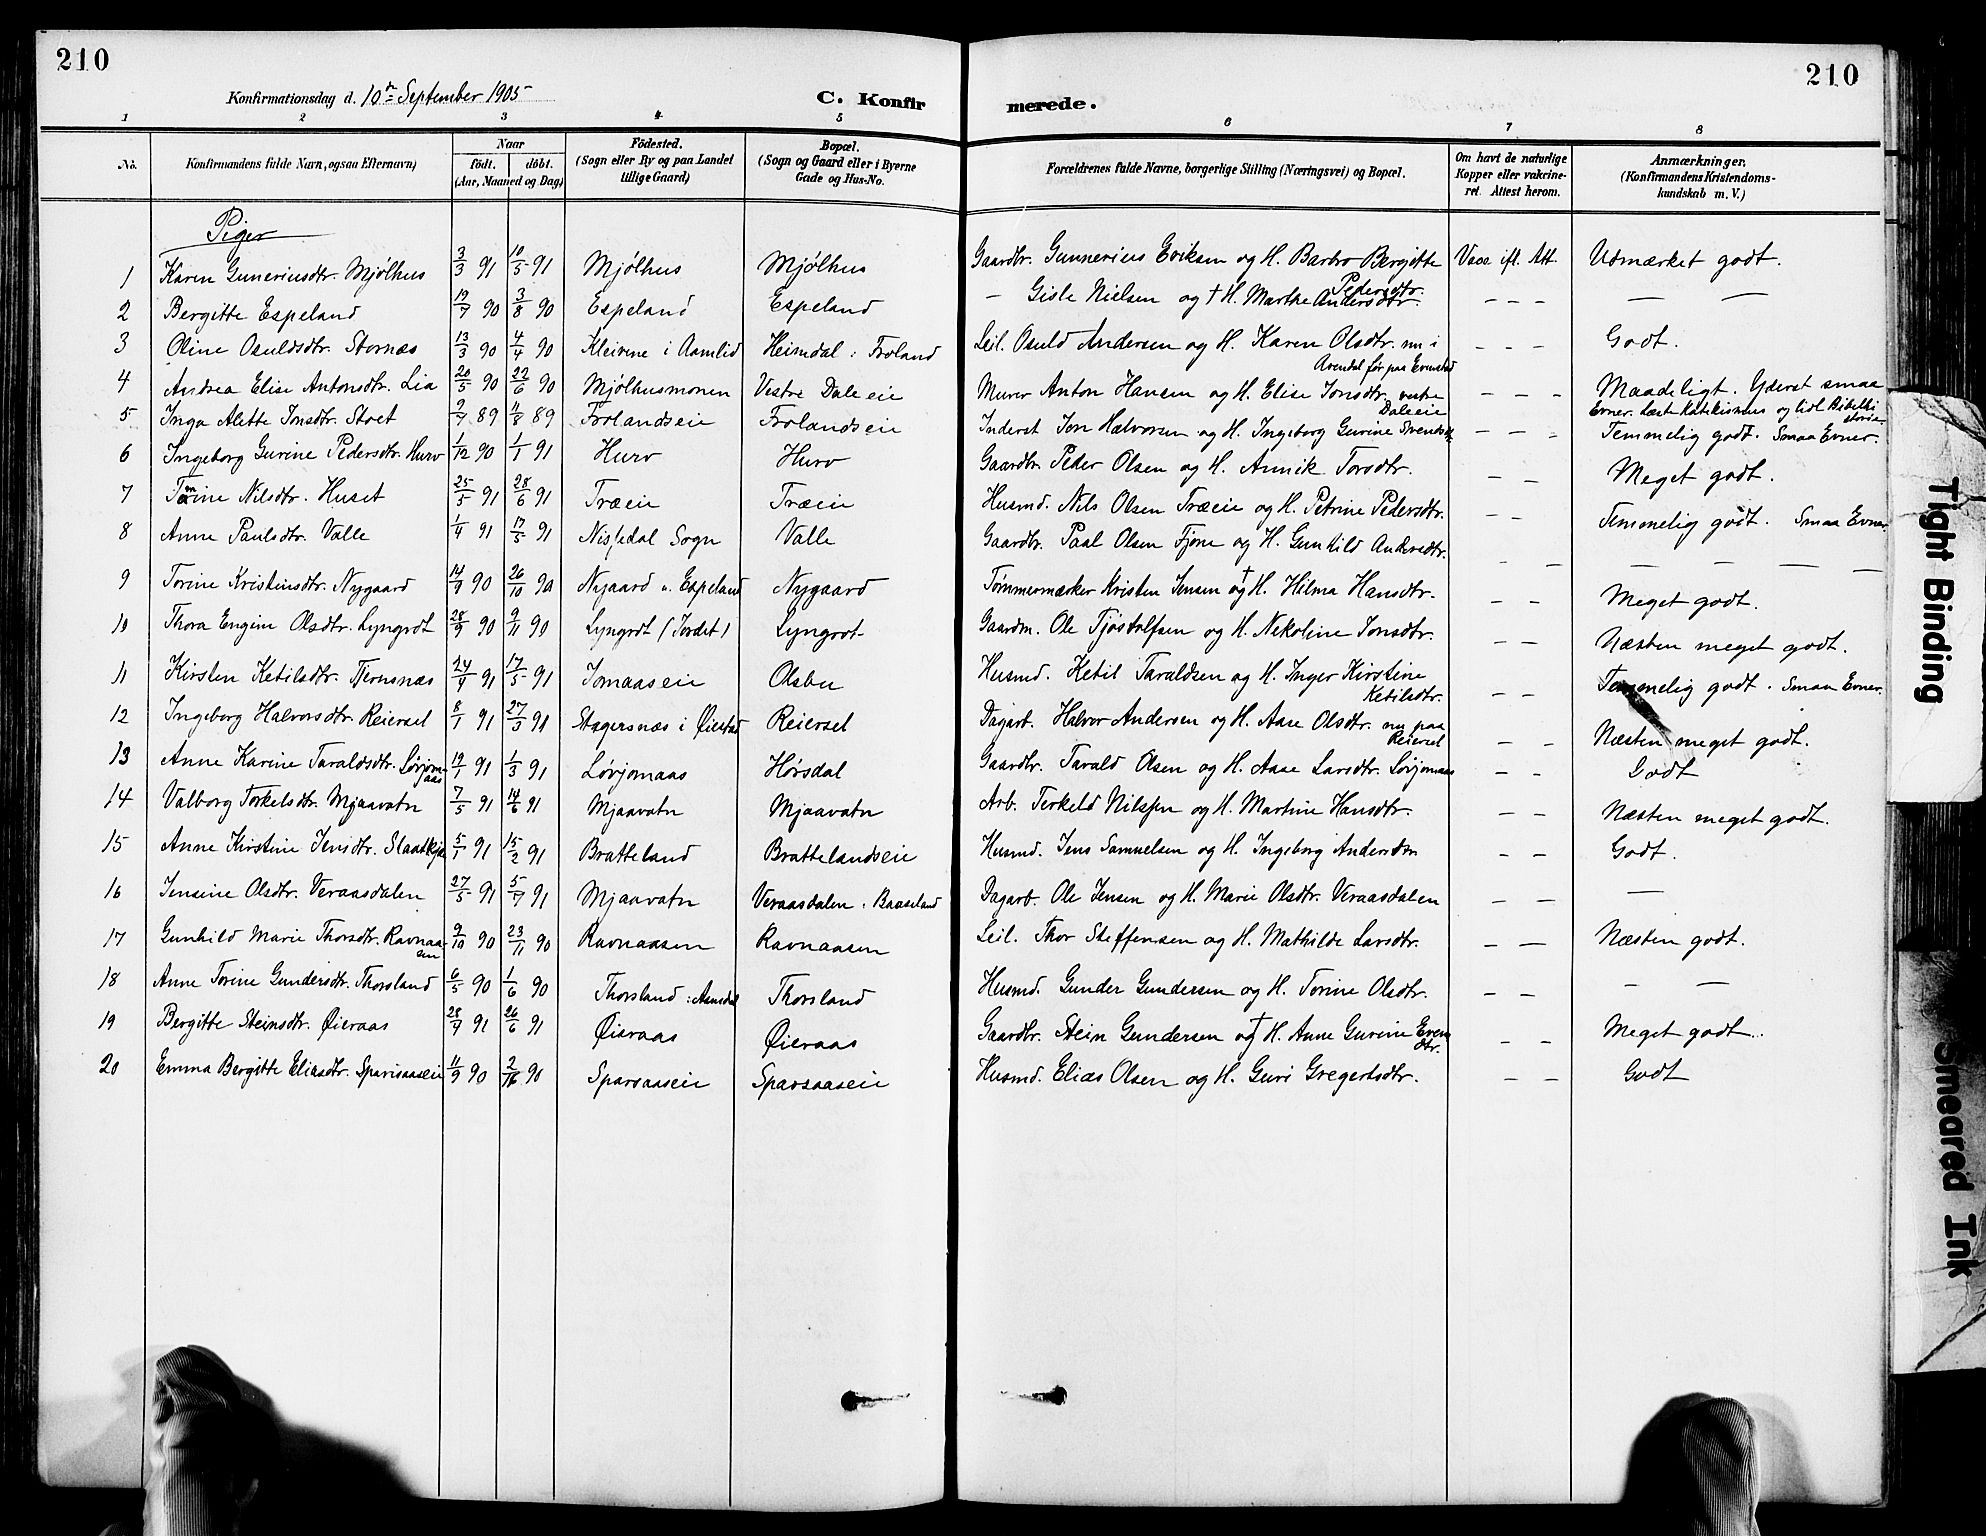 210
210
Konfirmationsdag d. 10de September 1905
C. Konfir merede.
1 2 3 4 5 6 7 8
No.
Konfirmandens fulde Navn, ogsaa Efternavn)
Naar
födt. döbt.
(Aar, Maaned og Dag)
Födested.
(Sogn eller By og paa Landet
tillige Gaard)
Bopæl.
(Sogn og Gaard eller i Byerne
Gade og Hus-No.
Forældrenes fulde Navne, borgerlige Stilling (Næringsvei) og Bopæl.
Om havt de naturlige
Kopper eller vakcine-
ret. Attest herom.
Anmærkninger.
(Konfirmandens Kristendoms-
kundskab m. V.)
Piger
1 Karen Gunneriusdtr. Mjølhus 3/3 91 10/5 91 Mjølhus Mjølhus Gaardbr. Gunnerius Eriksen og H. Barbro Bergitte Pedersdtr. Vacc. ifl. Att. Udmærket godt.
2 Bergitte Espeland 19/7 90 3/8 90 Espeland Espeland – Gisle Nielsen og † H. Marthe Andersdtr. – – – — —
3 Oline Osuldsdtr. Stornæs 13/3 90 4/4 90 Kleivene i Aamlid Heimdal i Froland Leil. Osuld Andersen og H. Karen Olsdtr. nu i Arendal før paa Evenstad – – – Godt.
4 Andrea Elise Antonsdtr. Lia 20/5 90 22/6 90 Mjølhusmonen Vestre Dale eie Murer Anton Hansen og H. Elise Jonsdtr. vestre Daleeie – – – Maadeligt. Yderst smaa Evner. Læst Katekismus og lidt Bibelhistorie
5 Inga Alette Jonsdtr. Stoet 9/7 89 4/8 89 Frolandseie Frolandseie Inderst Jon Halvorsen og H. Ingeborg Gurine – – – Temmelig godt. Smaa Evner.
6 Ingeborg Gurine Pedersdtr. Hurv 1/12 90 1/1 91 Hurv Hurv Gaardbr. Peder Olsen og H. Annik Torsdtr. – – Meget godt.
7 Nilsdtr. Huset 25/5 91 28/6 91 Træeie Træeie Husmd. Nils Olsen Træeie og H. Petrine Pedersdtr. – – Temmelig godt. Smaa Evner
8 Anne Paulsdtr. Valle 1/4 91 17/5 91 Nissedal Sogn Valle Gaardbr. Paal Olsen Fjone og H. Gunhild Andersdtr. – – — — — —
9 Torine Kristensdtr. Nygaard 14/9 90 26/10 90 Nygaard u. Espeland Nygaard Tømmermærker Kristen Jensen og † H. Hilma Hansdtr. – – Meget godt.
10 Thora Engine Olsdtr. Lyngrot 28/9 90 9/11 90 Lyngrot (Jordet) Lyngrot Gaardm. Ole Tjøstolfsen og H. Nekoline Jonsdtr. – – Næsten meget godt.
11 Kirsten Ketilsdtr. Tjernsnæs 14/4 91 17/5 91 Jomaaseie Olsbu Husmd. Ketil Taraldsen og H. Inger Kirstine Ketilsdtr. – – Temmelig godt. Smaa Evner.
12 Ingeborg Halvorsdtr. Reiersel 8/1 91 27/3 91 Stagersnæs i Øiestad Reiersel Dagarb. Halvor Andersen og H. Aase Olsdtr. nu paa Reiersel – – Næsten meget godt.
13 Anne Karine Taraldsdtr. Løvjomaas 19/1 91 1/3 91 Løvjomaas Hørsdal Gaardbr. Tarald Olsen og H. Aase Larsdtr. Løvjomaas – – Godt
14 Valborg Terkelsdtr. Mjaavatn 7/5 91 14/6 91 Mjaavatn Mjaavatn Arb. Terkeld Nilssen og H. Martine Hansdtr. – – Næsten meget godt.
15 Anne Kirstine Jensdtr. 5/1 91 15/2 91 Bratteland Brattelandseie Husmd. Jens Samuelsen og H. Ingeborg Andersdtr – – Godt.
16 Jensine Olsdtr. Veraasdalen 27/5 91 5/7 91 Mjaavatn Veraasdalen i Baaseland Dagarb. Ole Jensen og H. Marie Olsdtr. Veraasdalen – – —
17 Gunhild Marie Thorsdtr. Ravnaasen 9/10 90 23/11 90 Ravnaasen Ravnaasen Leil. Thor Steffensen og H. Mathilde Larsdtr. – – Næsten godt.
18 Anne Torine Gundersdtr. Thorsland 6/5 90 1/6 90 Thorsland i Aamdal Thorsland Husmd. Gunder Gundersen og H. Torine Olsdtr. – – – —
19 Bergitte Steinsdtr. Øieraas 28/4 91 26/6 91 Øieraas Øieraas Gaardbr. Stein Gundersen og † H. Anne Gurine Evensdtr. – – Meget godt.
20 Emma Bergitte Eliasdtr. Sparsaaseie 11/9 90 90 Sparsaaseie Sparsaaseie Husmd. Elias Olsen og H. Guri Gregertsdtr. – – Godt
Tight Binding
Smeared Ink